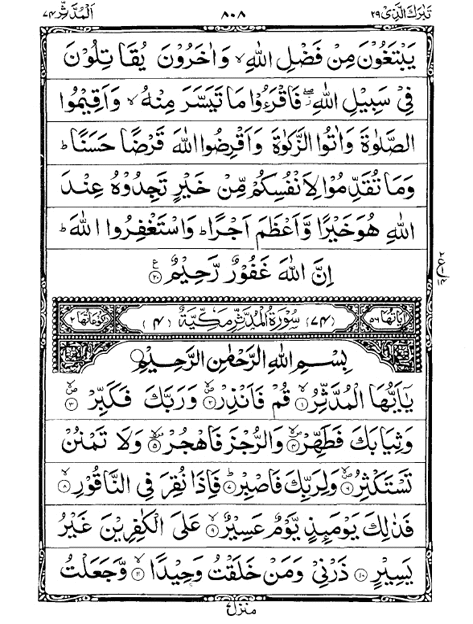 تبٰرك الذی ۲۹ ۸۰۸ المدثر ۷۴
يَبْتَغُوْنَ مِنْ فَضْلِ اللّٰهِ ۙ وَاٰخَرُوْنَ يُقَاتِلُوْنَ
فِيْ سَبِيْلِ اللّٰهِ ۖ فَاقْرَءُوْا مَا تَيَسَّرَ مِنْهُ ۙ وَاَقِيْمُوا
الصَّلٰوةَ وَاٰتُوا الزَّكٰوةَ وَاَقْرِضُوا اللّٰهَ قَرْضًا حَسَنًا ؕ
وَمَا تُقَدِّمُوْا لِاَنْفُسِكُمْ مِّنْ خَيْرٍ تَجِدُوْهُ عِنْدَ
اللّٰهِ هُوَ خَيْرًا وَّاَعْظَمَ اَجْرًا ؕ وَاسْتَغْفِرُوا اللّٰهَ ؕ
اِنَّ اللّٰهَ غَفُوْرٌ رَّحِيْمٌ ۲۰
اٰیاتها ۵۶ (۷۴) سُوْرَةُ الْمُدَّثِّرِ مَكِّيَّةٌ (۴) رکوعاتها ۲
بِسْمِ اللّٰهِ الرَّحْمٰنِ الرَّحِيْمِ
يٰۤاَيُّهَا الْمُدَّثِّرُ ۱ قُمْ فَاَنْذِرْ ۲ وَرَبَّكَ فَكَبِّرْ ۳
وَثِيَابَكَ فَطَهِّرْ ۴ وَالرُّجْزَ فَاهْجُرْ ۵ وَلَا تَمْنُنْ
تَسْتَكْثِرُ ۶ وَلِرَبِّكَ فَاصْبِرْ ۷ فَاِذَا نُقِرَ فِي النَّاقُوْرِ ۸
فَذٰلِكَ يَوْمَئِذٍ يَّوْمٌ عَسِيْرٌ ۹ عَلَى الْكٰفِرِيْنَ غَيْرُ
يَسِيْرٍ ۱۰ ذَرْنِيْ وَمَنْ خَلَقْتُ وَحِيْدًا ۱۱ وَّجَعَلْتُ
منزل ۷